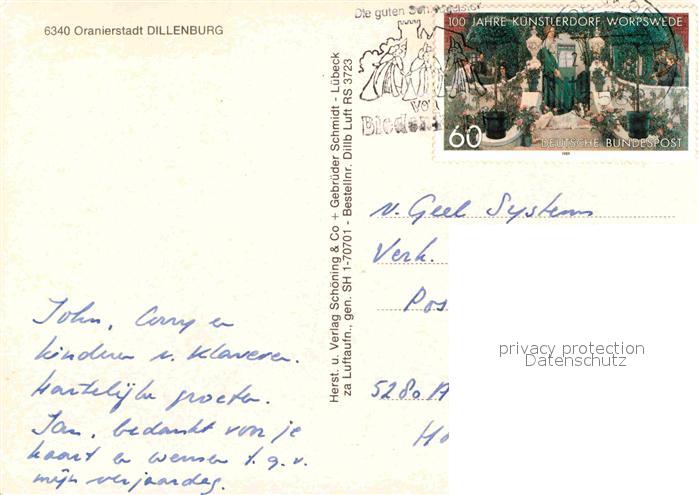 6340 Oranierstadt DILLENBURG
Die guten
von
100 JAHRE KÜNSTLERDORF WORPSWEDE
60
DEUTSCHE BUNDESPOST
1989
Herst. u. Verlag Schöning & Co + Gebrüder Schmidt - Lübeck
za Luftaufn., gen. SH 1-70701 - Bestellnr. Dillb Luft RS 3723
v. Geel Systems
Verk.
Pos
5280 A
Ho
privacy protection
Datenschutz
John, Corry en
kinderen v. Klaveren.
Hartelijke groeten.
Jan, bedankt voor je
kaart en wensen t.g.v.
mijn verjaardag.